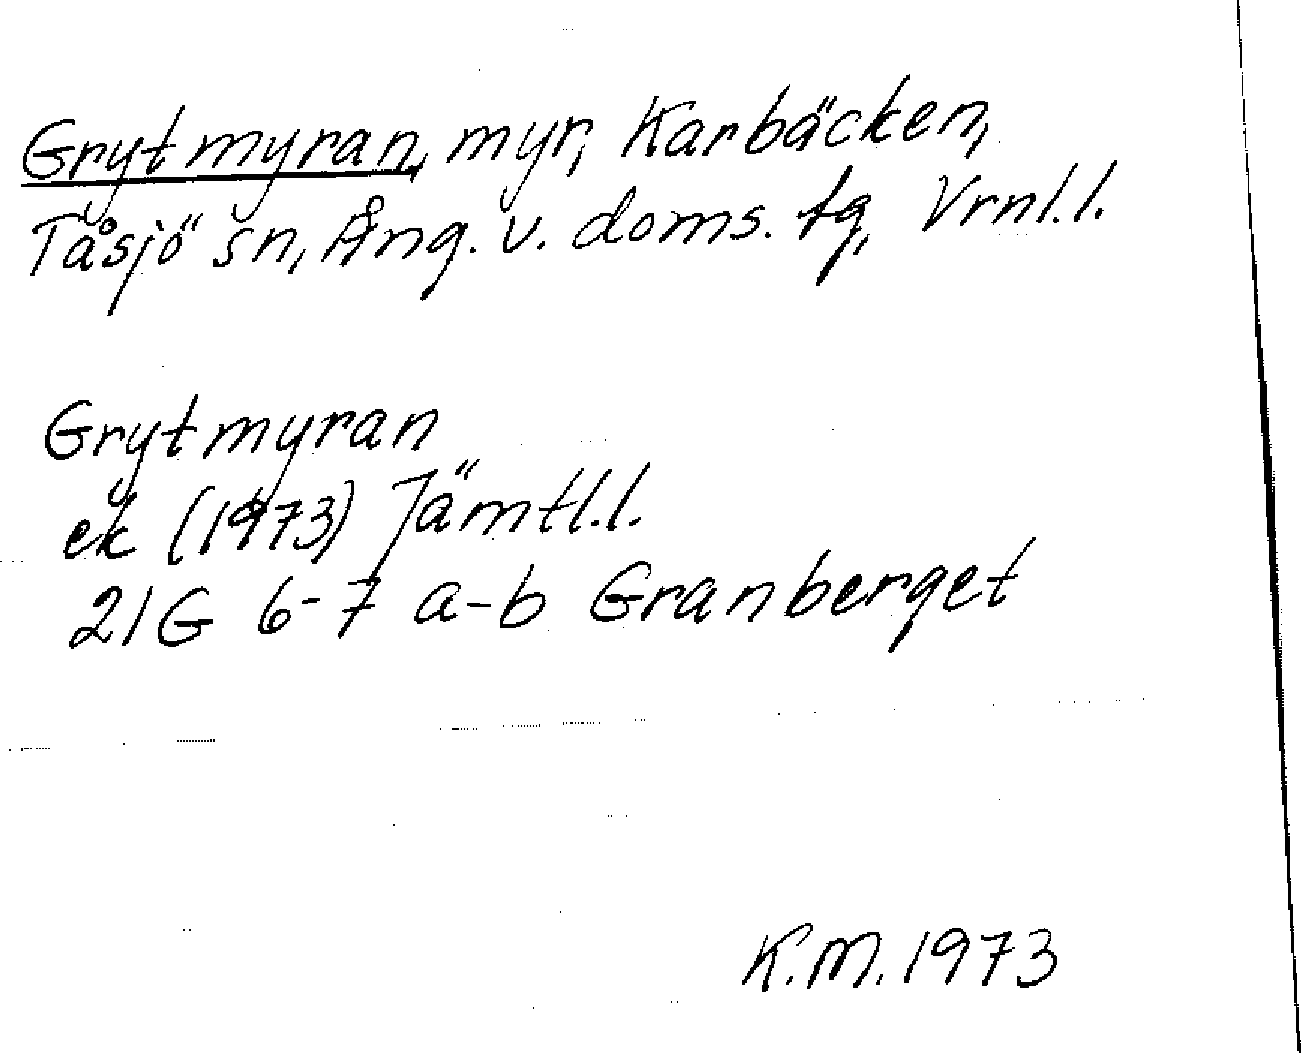 Grytmyran, myr, Karbäcken,
Tåsjö sn, Ång. v. doms. tg, Vrnl.l.
Grytmyran
ek (1973) Jämtl.l.
21G 6-7 a-b Granberget
K.M. 1973